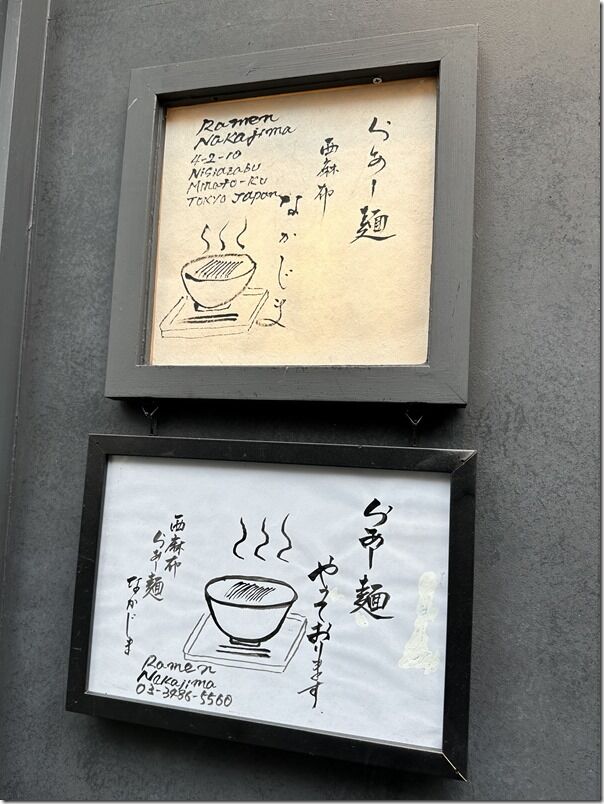 らぁー麺
西麻布
なかじま
Ramen
Nakajima
4-2-10
Nisiazabu
Minato-ku
Tokyo Japan
らぁー麺
やっております
西麻布
らぁー麺
なかじま
Ramen
Nakajima
03-3486-5560